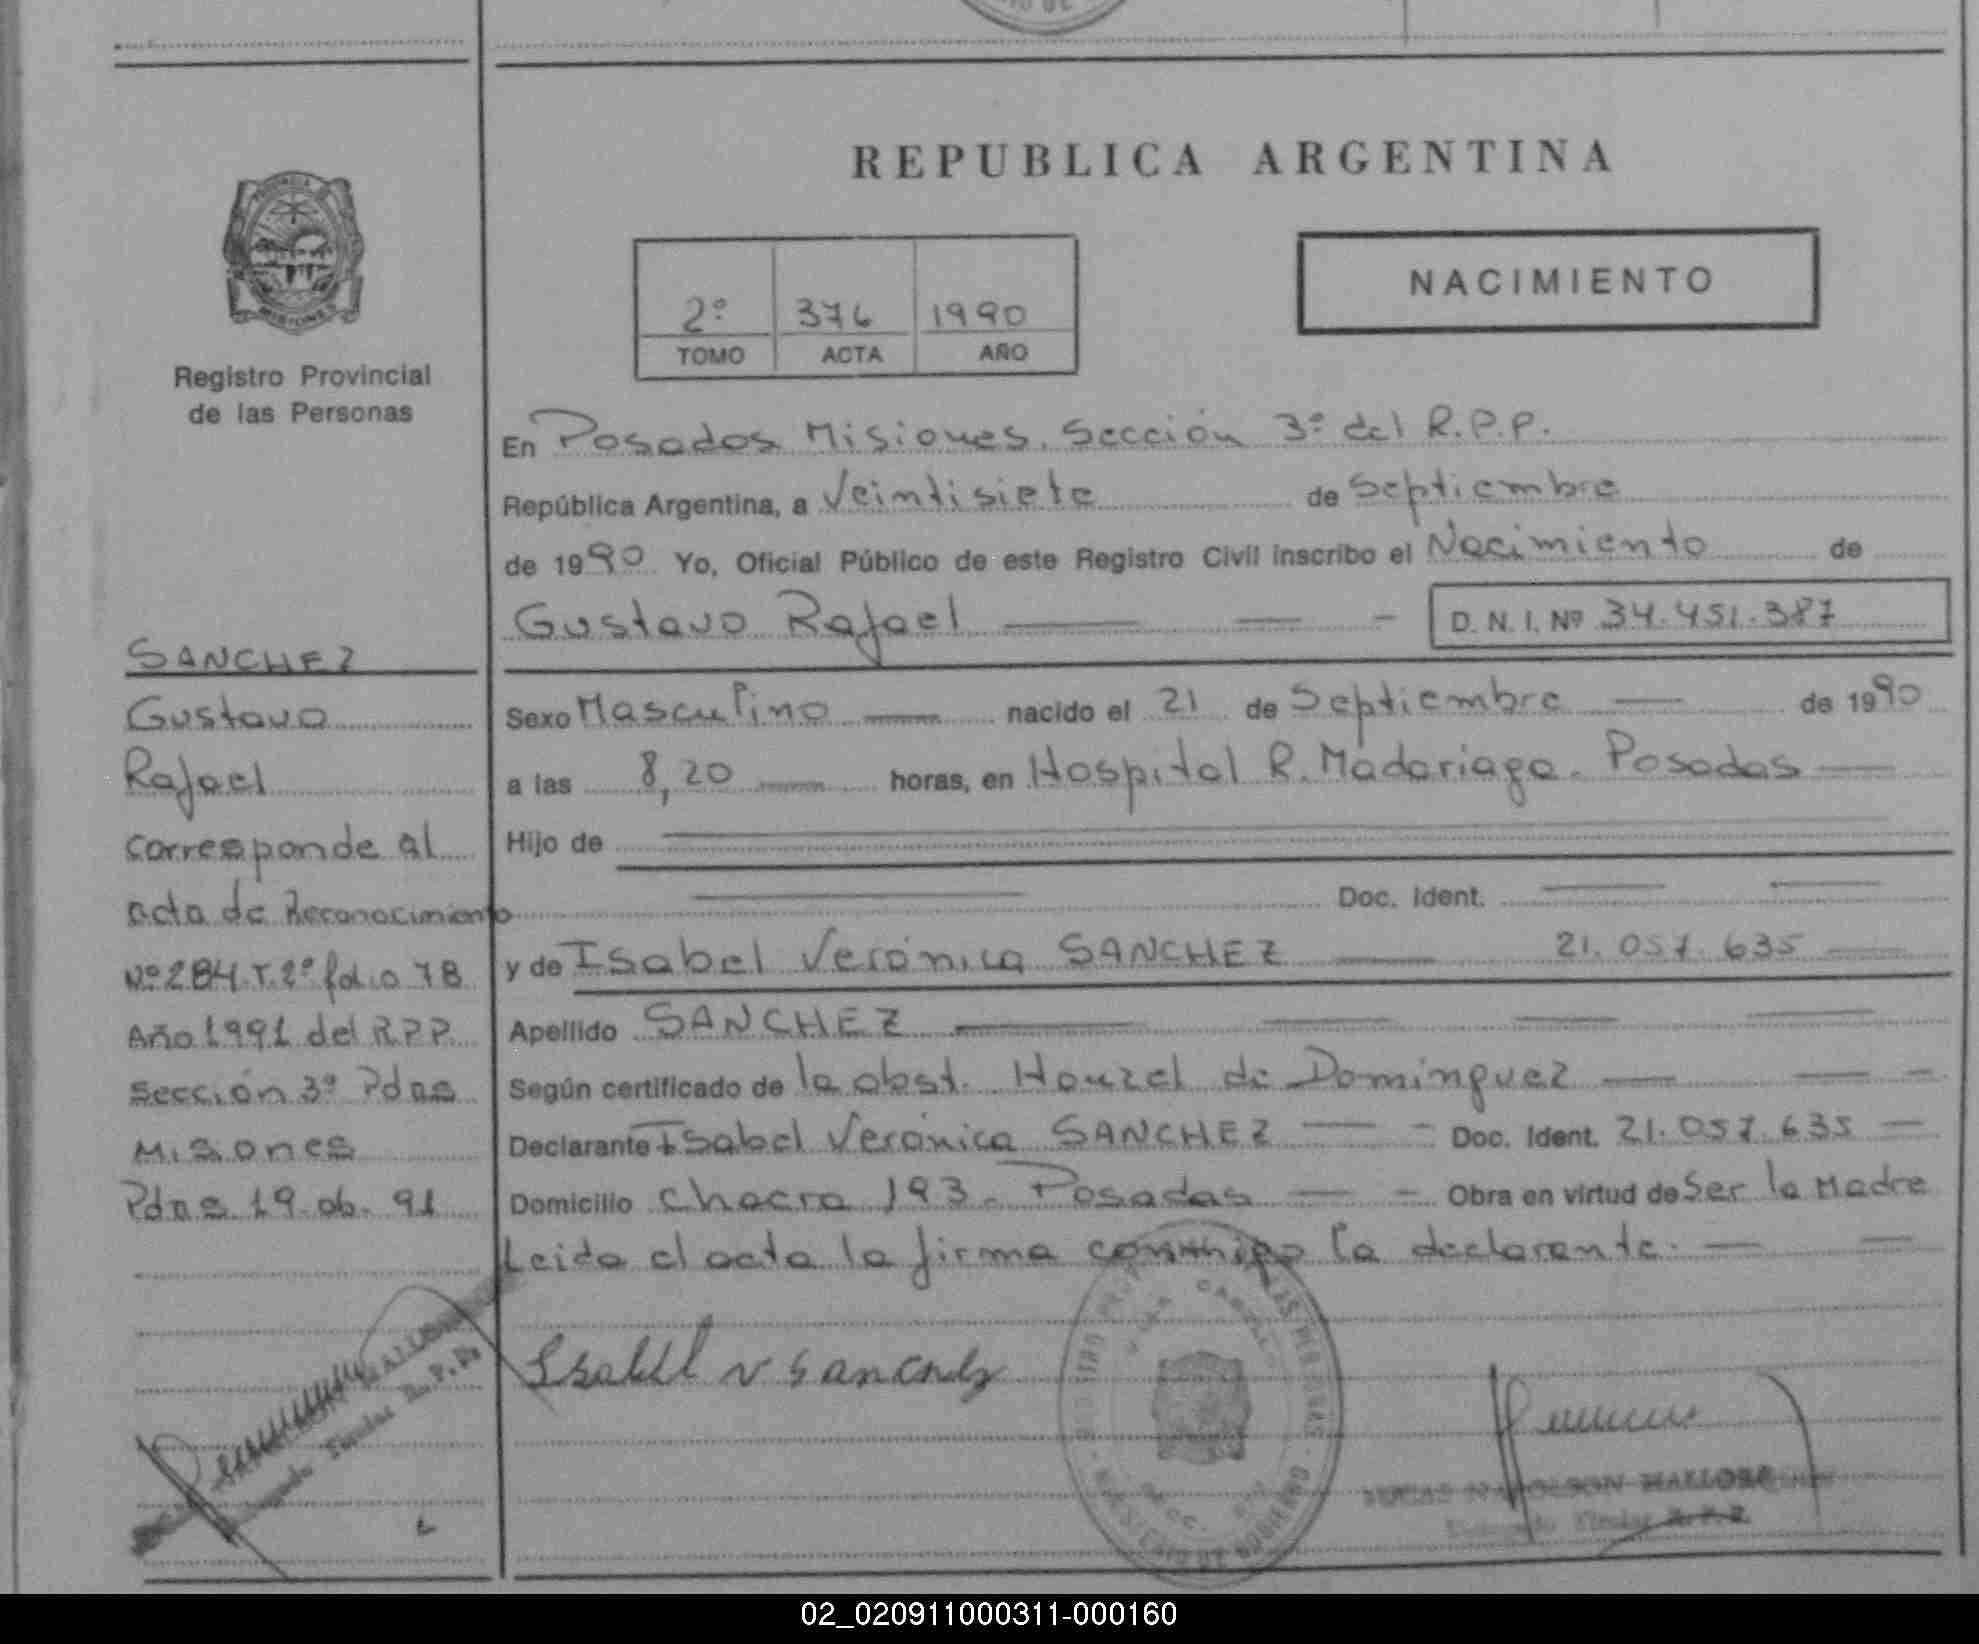 REPUBLICA ARGENTINA
PROVINCIA
MISIONES
Registro Provincial
de las Personas
2º 376 1990
TOMO ACTA AÑO
NACIMIENTO
En Posadas Misiones. Sección 3º del R.P.P.
República Argentina, a Veintisiete de Septiembre
de 1990 Yo, Oficial Público de este Registro Civil inscribo el Nacimiento de
Gustavo Rafael — — - D. N. I. Nº 34.451.387
Sexo Masculino — nacido el 21 de Septiembre — de 1990
a las 8,20 — horas, en Hospital R. Madariaga. Posadas —
Hijo de
Doc. Ident. — —
y de Isabel Verónica SANCHEZ — 21.057.635 —
Apellido SANCHEZ — — — —
Según certificado de la obst. Houzel de Dominguez — — -
Declarante Isabel Verónica SANCHEZ — - Doc. Ident. 21.057.635 —
Domicilio Chacra 193. Posadas — - Obra en virtud de Ser la Madre
Leida el acta la firma conmigo la declarante. — —
SANCHEZ
Gustavo
Rafael
corresponde al
acta de Reconocimiento
Nº 284.T.2º folio 78
Año 1991 del R.P.P.
Sección 3º Pdas
Misiones
Pdas 19.06.91
R.P.P.
Isabel V Sanchez
Titular R.P.P.
02_020911000311-000160